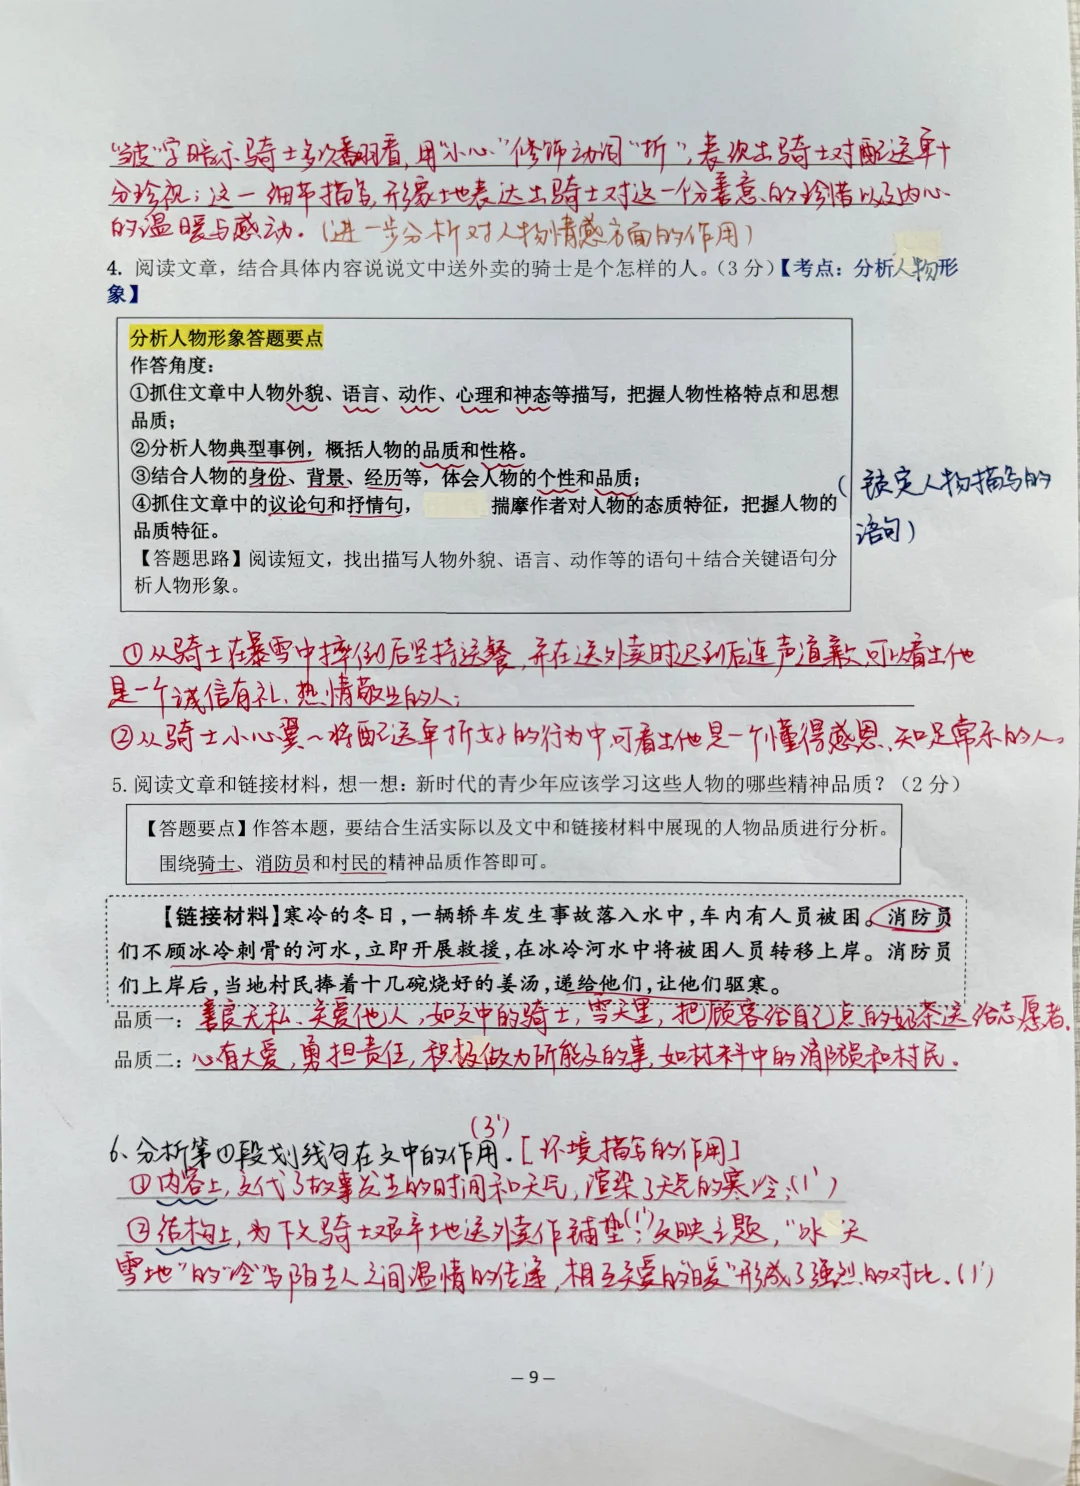 “皱”字暗示骑士多次翻看,用“小心”修饰动词“折”,表现出骑士对配送单十
分珍视;这一细节描写,形象地表达出骑士对这一份善意的珍惜以及内心
的温暖与感动.(进一步分析对人物情感方面的作用)
4. 阅读文章,结合具体内容说说文中送外卖的骑士是个怎样的人。(3 分)【考点:分析人物形
象】
分析人物形象答题要点
作答角度:
①抓住文章中人物外貌、语言、动作、心理和神态等描写,把握人物性格特点和思想
品质;
②分析人物典型事例,概括人物的品质和性格。
③结合人物的身份、背景、经历等,体会人物的个性和品质;
④抓住文章中的议论句和抒情句, 揣摩作者对人物的态质特征,把握人物的
品质特征。
(锁定人物描写的
语句)
【答题思路】阅读短文,找出描写人物外貌、语言、动作等的语句+结合关键语句分
析人物形象。
①从骑士在暴雪中摔倒后坚持送餐,并在送外卖时迟到后连声道歉,可以看出他
是一个诚信有礼、热情敬业的人;
②从骑士小心翼~将配送单折好的行为中,可看出他是一个懂得感恩、知足常乐的人。
5. 阅读文章和链接材料,想一想:新时代的青少年应该学习这些人物的哪些精神品质?(2 分)
【答题要点】作答本题,要结合生活实际以及文中和链接材料中展现的人物品质进行分析。
围绕骑士、消防员和村民的精神品质作答即可。
【链接材料】寒冷的冬日,一辆轿车发生事故落入水中,车内有人员被困。消防员
们不顾冰冷刺骨的河水,立即开展救援,在冰冷河水中将被困人员转移上岸。消防员
们上岸后,当地村民捧着十几碗烧好的姜汤,递给他们,让他们驱寒。
品质一:善良无私、关爱他人,如文中的骑士,雪天里,把顾客给自己点的奶茶送给志愿者.
品质二:心有大爱,勇担责任,积极做力所能及的事,如材料中的消防员和村民.
(3')
6、分析第①段划线句在文中的作用.[环境描写的作用]
①内容上,交代了故事发生的时间和天气,渲染了天气的寒冷;(1')
②结构上,为下文骑士艰辛地送外卖作铺垫(1');反映主题,“冰天
雪地”的“冷”与陌生人之间温情的传递,相互关爱的“暖”形成了强烈的对比.(1')
— 9 —